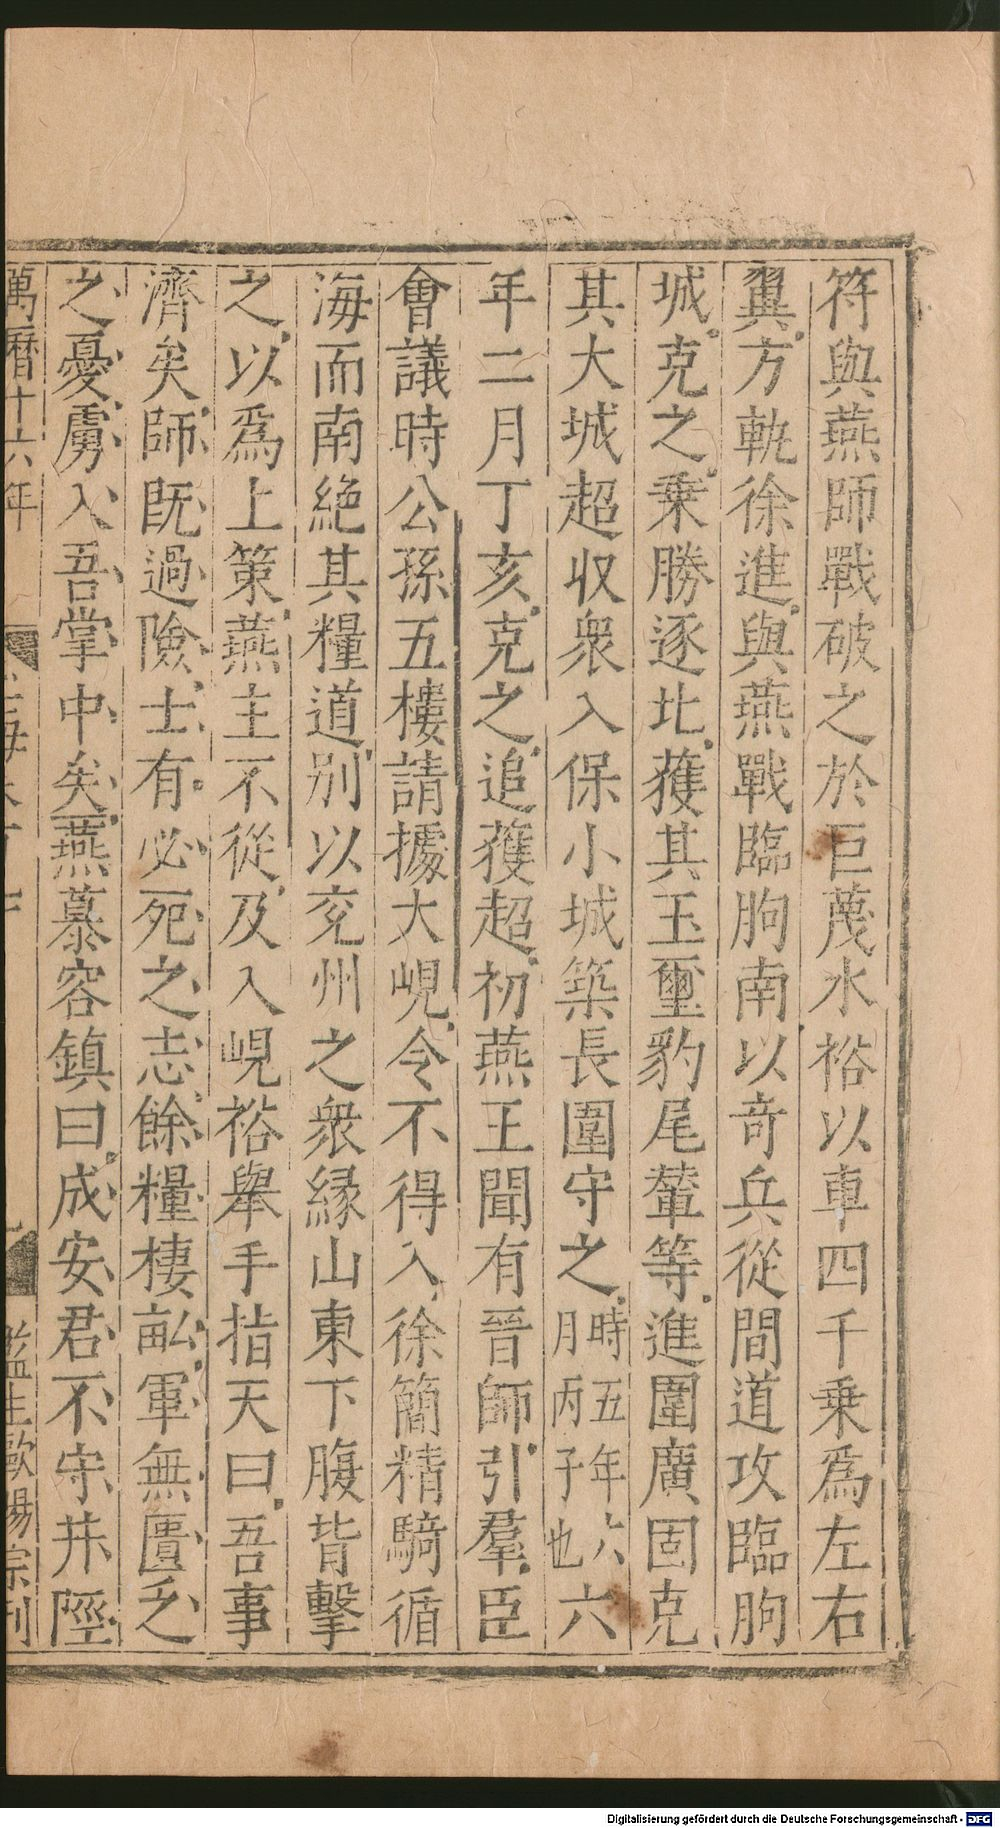 符與燕師戰破之於巨蔑水裕以車四千乗爲左右
翼方軌徐進與燕戰臨朐南以奇兵從間道攻臨朐
城克之乗勝逐北獲其玉璽豹尾輦等進圍廣固克
其大城超収衆入保小城築長圍守之時五年六月丙子也六
年二月丁亥克之追獲超初燕王聞有晉師引羣臣
會議時公孫五樓請據大峴令不得入徐簡精騎循
海而南絶其糧道别以兖州之衆縁山東下腹背擊
之以爲上策燕主不從及入峴裕舉手指天曰吾事
濟矣師既過險士有必死之志餘糧棲畝軍無匱乏
之憂虜入吾掌中矣燕慕容鎮曰成安君不守井陘
萬曆十六年
監生歐陽宗刊
Digitalisierung gefördert durch die Deutsche Forschungsgemeinschaft - DFG